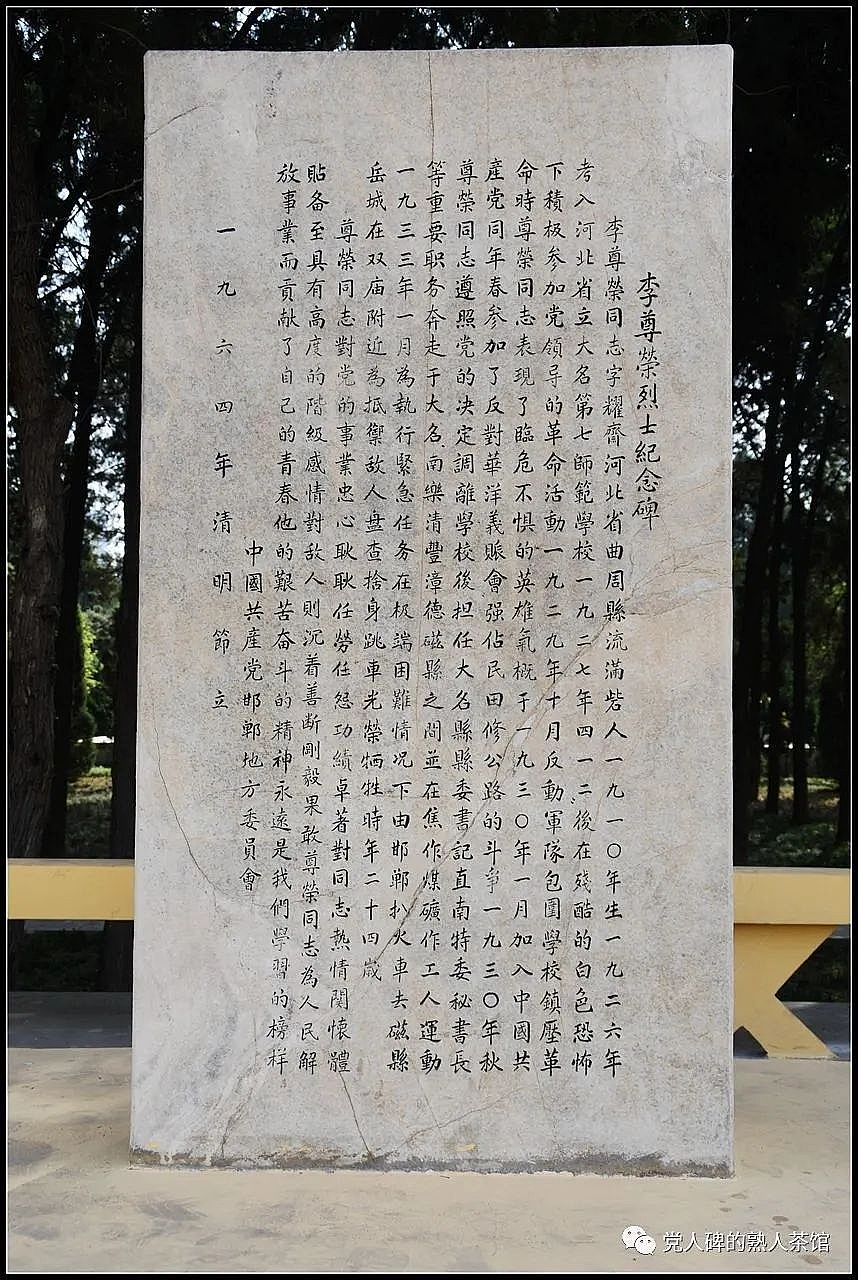 李尊榮烈士紀念碑
李尊榮同志字耀齊河北省曲周縣流滿砦人一九一〇年生一九二六年
考入河北省立大名第七師範學校一九二七年四一二後在殘酷的白色恐怖
下積极參加党領导的革命活動一九二九年十月反動軍隊包圍學校鎮壓革
命時尊榮同志表現了臨危不惧的英雄氣概于一九三〇年一月加入中國共
產党同年春參加了反對華洋義賑會强佔民田修公路的斗爭一九三〇年秋
尊榮同志遵照党的决定調離學校後担任大名縣縣委書記直南特委秘書長
等重要职务奔走于大名南樂清豐漳德磁縣之間並在焦作煤礦作工人運動
一九三三年一月為執行緊急任务在极端困難情况下由邯鄲扒火車去磁縣
岳城在双庙附近為抵禦敌人盘查捨身跳車光榮牺牲時年二十四歲
尊榮同志對党的事業忠心耿耿任勞任怨功績卓著對同志热情関懷體
貼备至具有高度的階級感情對敌人則沉着善断剛毅果敢尊榮同志為人民解
放事業而貢献了自己的青春他的艱苦奋斗的精神永遠是我們學習的榜样
中國共產党邯鄲地方委員會
一九六四年清明節立
党人碑的熟人茶馆